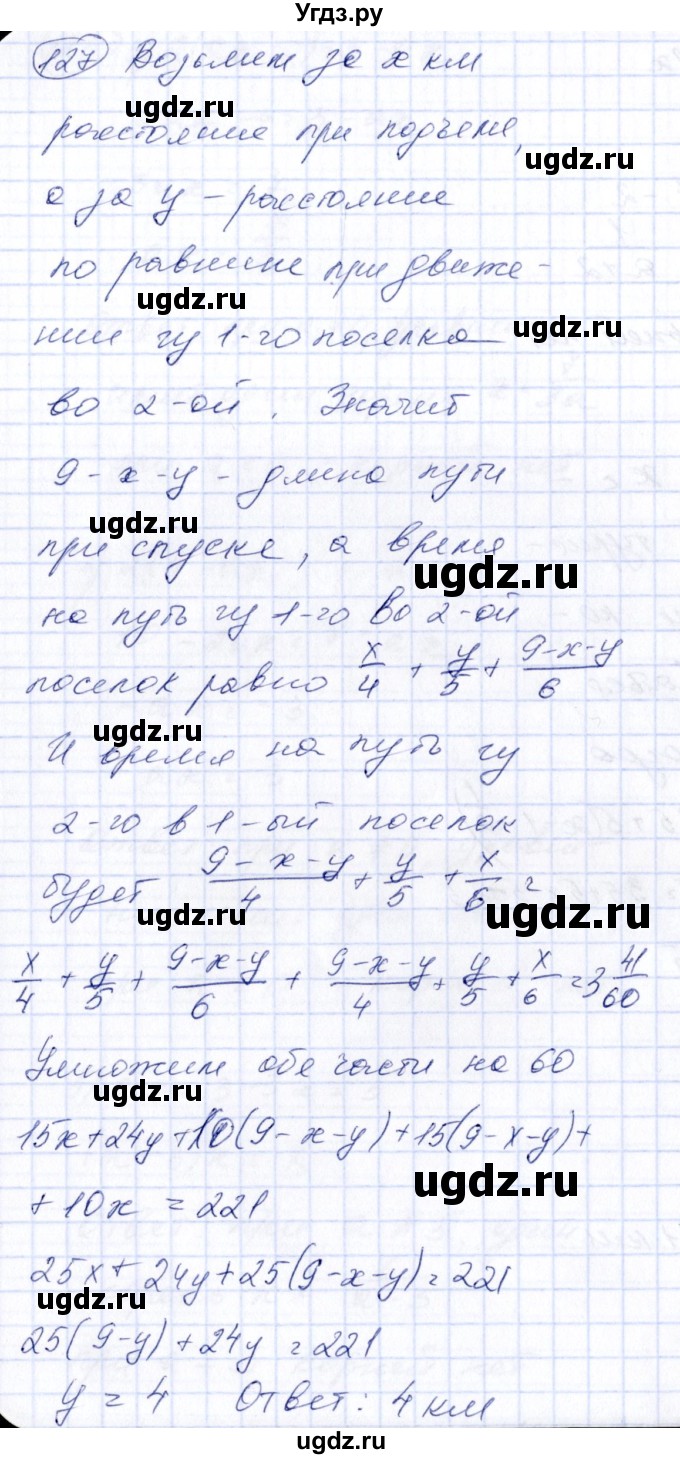 Угдз.ру
127 Возьмем за x км
ugdz.ru
расстояние при подъеме,
ugdz.ru
а за y – расстояние
по равнине при движе-
ugdz.ru
нии из 1-го поселка
ugdz.ru
во 2-ой. Значит
9-x-y - длина пути
ugdz.ru
при спуске, а время
ugdz.ru
на путь из 1-го во 2-ой
поселок равно x/4 + y/5 + (9-x-y)/6
ugdz.ru
И время на путь из
2-го в 1-ый поселок
будет (9-x-y)/4 + y/5 + x/6 =
ugdz.ru ugdz.ru
x/4 + y/5 + (9-x-y)/6 + (9-x-y)/4 + y/5 + x/6 = 3 41/60
Умножим обе части на 60
ugdz.ru
15x+24y+10(9-x-y)+15(9-x-y)+
ugdz.ru
+10x = 221
25x+24y+25(9-x-y)=221
ugdz.ru
25(9-y)+24y=221
ugdz.ru
y = 4 Ответ: 4 км
ugdz.ru